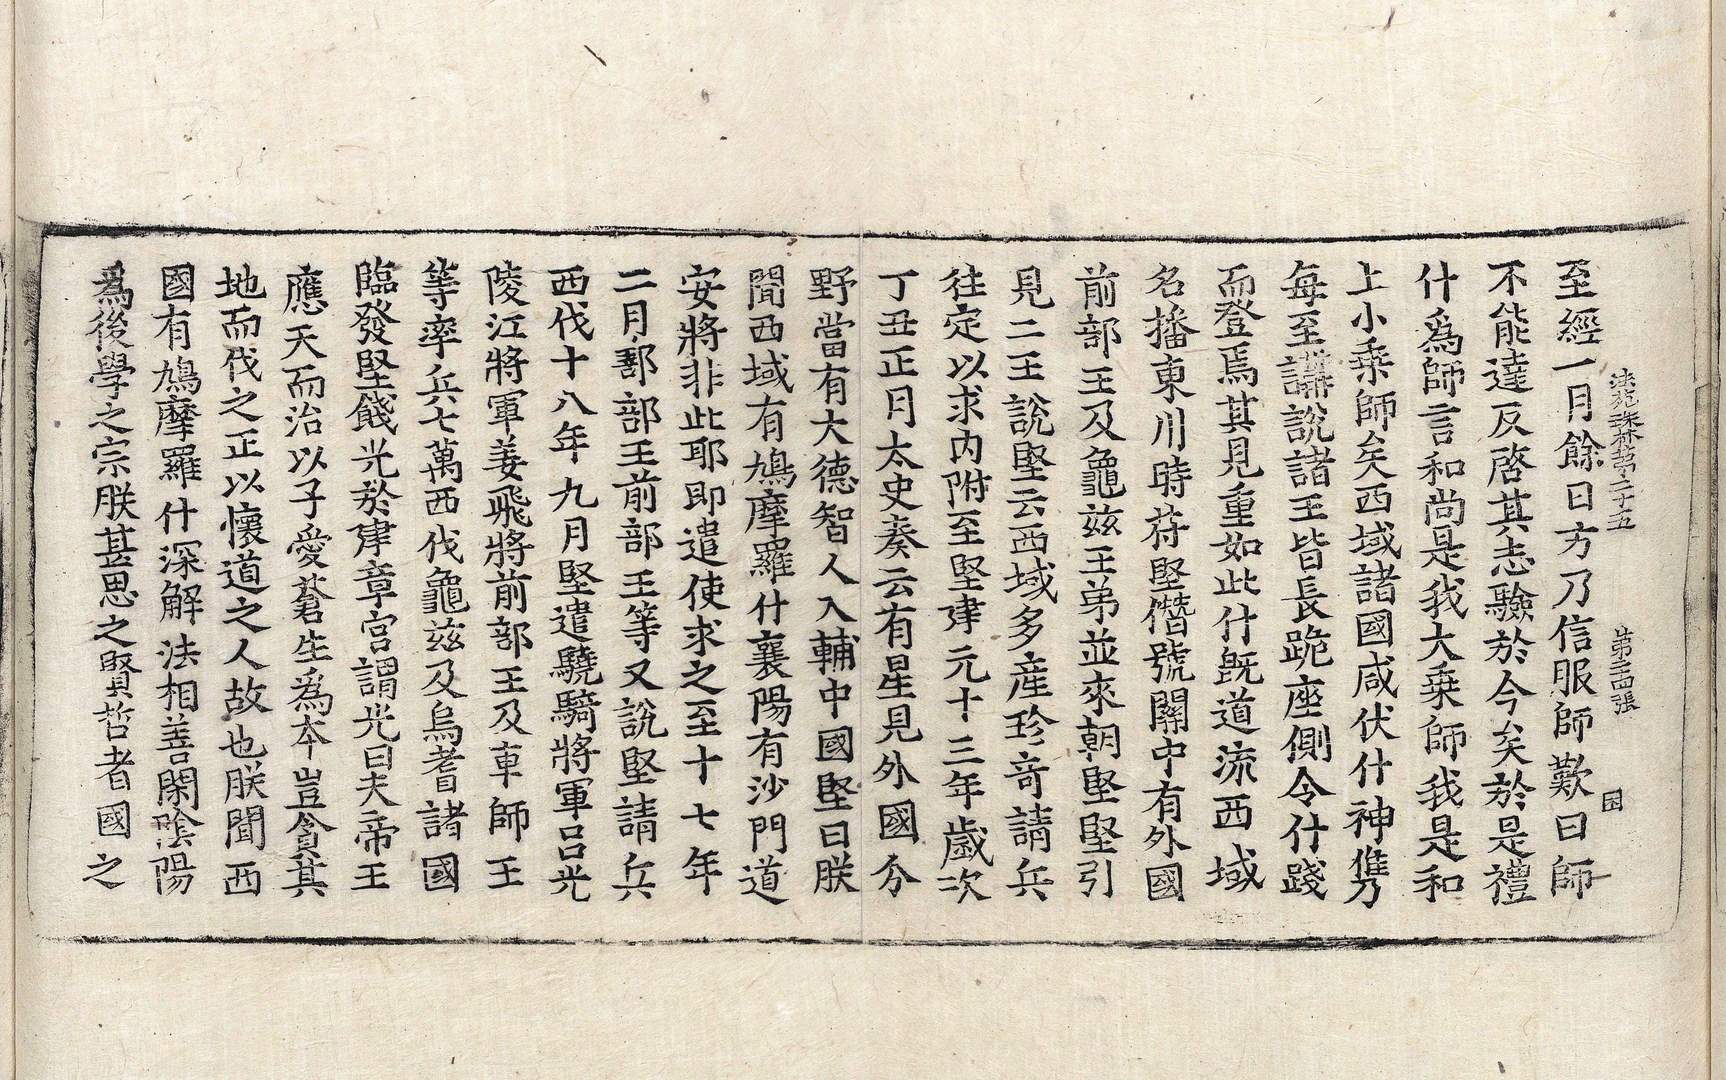 法苑珠林第二十五 第三十四張 困
至經一月餘日方乃信服師歎曰師
不能達反啓其志驗於今矣於是禮
什爲師言和尚是我大乗師我是和
上小乗師矣西域諸國咸伏什神雋
每至講説諸王皆長跪座側令什踐
而登焉其見重如此什旣道流西域
名播東川時苻堅僭號關中有外國
前部王及龜兹王弟並來朝堅堅引
見二王説堅云西域多産珍竒請兵
往定以求內附至堅建元十三年歲次
丁丑正月太史奏云有星見外國分
野當有大德智人入輔中國堅曰朕
聞西域有鳩摩羅什襄陽有沙門道
安將非此耶即遣使求之至十七年
二月鄯部王前部王等又説堅請兵
西伐十八年九月堅遣驍騎將軍吕光
陵江將軍姜飛將前部王及車師王
等率兵七萬西伐龜兹及烏耆諸國
臨發堅餞光於建章宫謂光曰夫帝王
應天而治以子愛蒼生爲本豈貪其
地而伐之正以懷道之人故也朕聞西
國有鳩摩羅什深解法相善閑陰陽
爲後學之宗朕甚思之賢哲者國之